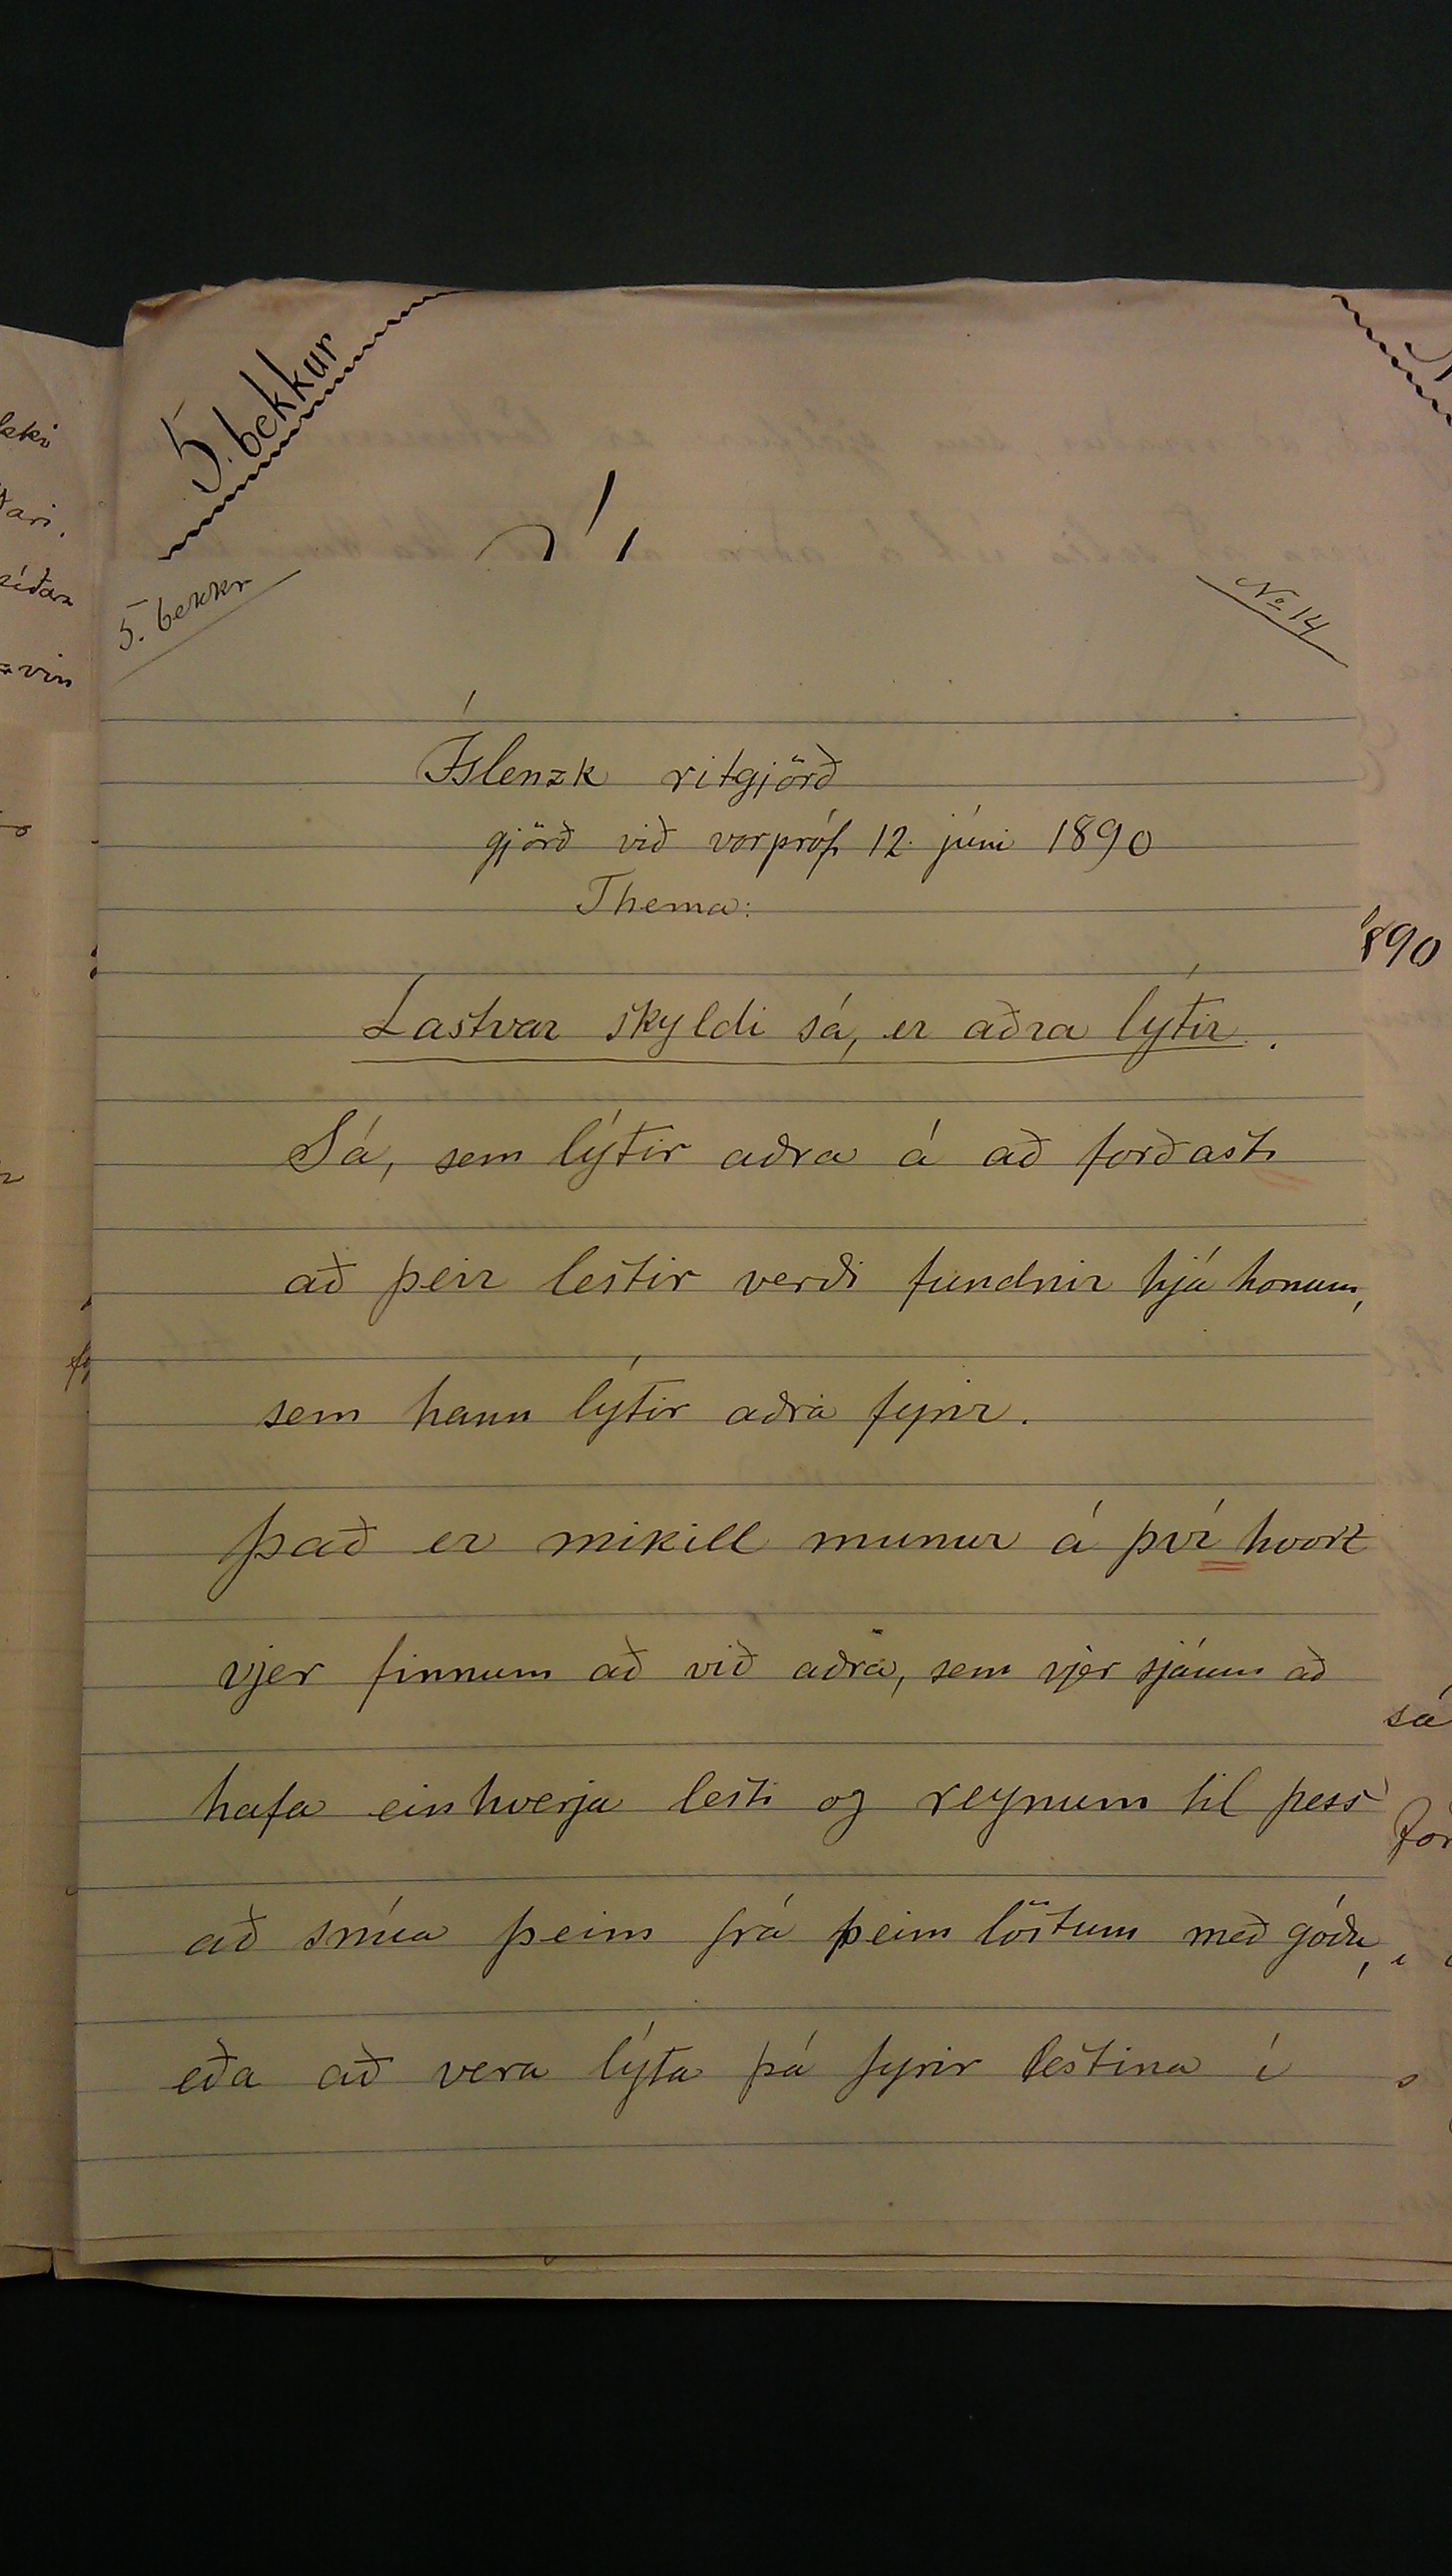 5. bekkur
5. bekkr
No 14
Íslenzk ritgjörð
gjörð við vorpróf 12. júni 1890
Thema:
Lastvar skyldi sá, er aðra lýtir.
Sá, sem lýtir aðra á að forðast
að þeir lestir verði fundnir hjá honum,
sem hann lýtir aðra fyrir.
Það er mikill munur á því hvort
vjer finnum að við aðra, sem vjer sjáum að
hafa einhverja lesti og reynum til þess
að snúa þeim frá þeim löstum með góðu,
eða að vera lýta þá fyrir lestina í
890
sá